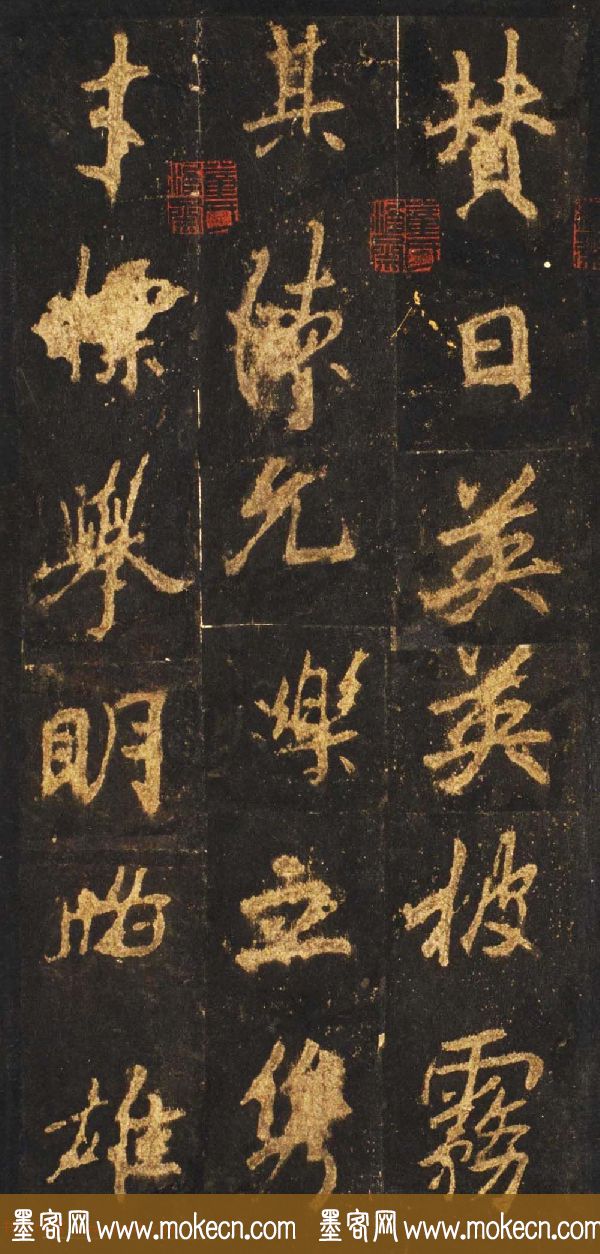 贊曰英英披霧
其允爍立雋
才標舉明雄
墨客网 www.mokecn.com 墨客网 www.mokecn.com